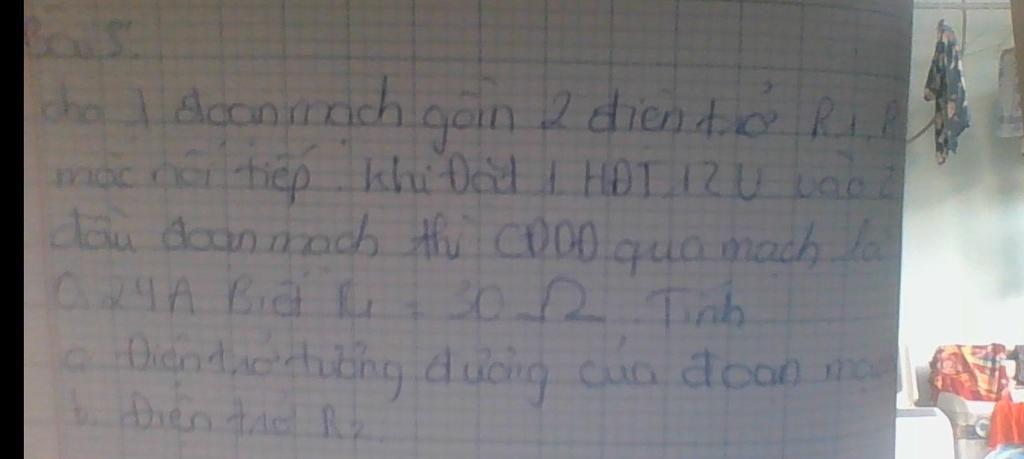 Bài 5.
cho 1 đoạn mạch gồm 2 điện trở R1, R
mắc nối tiếp. Khi Đặt 1 HĐT 12V vào 2
đầu đoạn mạch thì CĐDĐ qua mạch là
0,24A Biết R1 = 30 Ω. Tính
a. Điện trở tương đương của đoạn mạ
b. Điện trở R2.